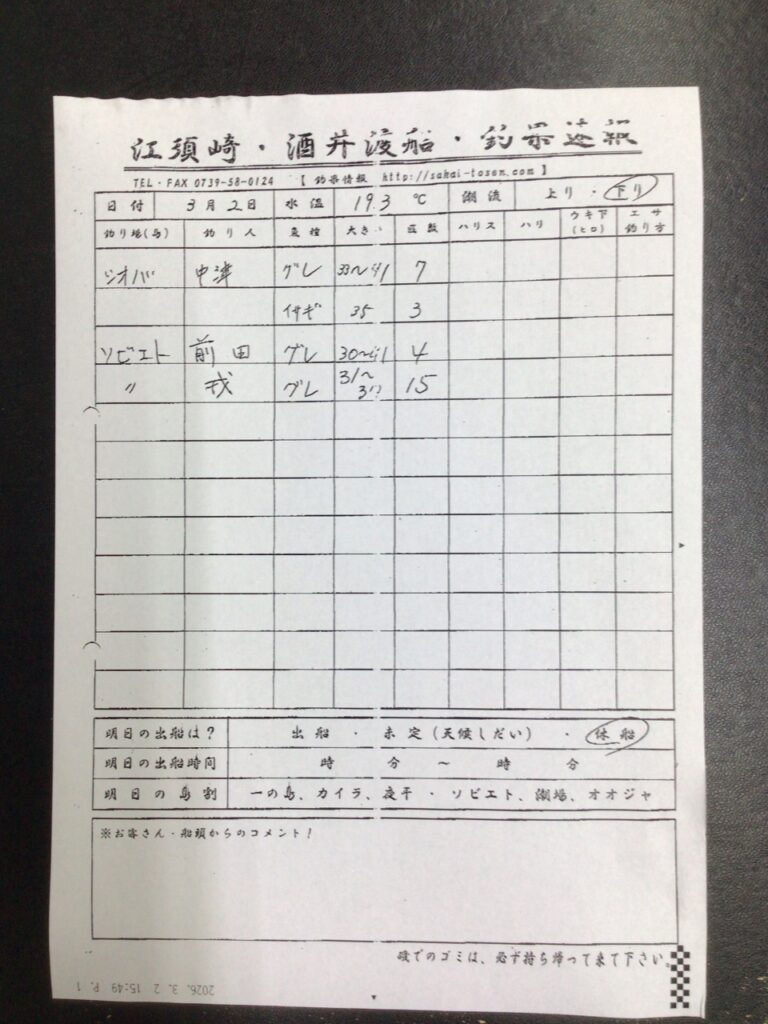 江須崎・酒井渡船・釣果速報
TEL・FAX 0739-58-0124 【 釣果情報 http://sakai-tosen.com 】
日付 3月2日 水温 19.3 ℃ 潮流 上り・下り
釣り場(島) 釣り人 魚種 大きさ 匹数 ハリス ハリ ウキ下(ヒロ) エサ釣り方
シオバ 中津 グレ 33〜41 7
イサギ 35 3
ソビエト 前田 グレ 30〜41 4
〃 我 グレ 31〜37 15
明日の出船は? 出船・未定(天候しだい)・休船
明日の出船時間 時 分 〜 時 分
明日の島割 一の島、カイラ、夜干・ソビエト、潮場、オオジャ
※お客さん・船頭からのコメント!
磯でのゴミは、必ず持ち帰って来て下さい。
2026. 3. 2 15:49 P. 1